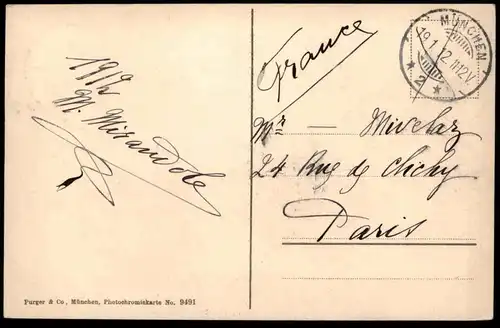 France
MÜNCHEN
19.1.12.11-12V.
* 2 *
M. Mirandole
Mr — Mivelaz
24 Rue de Clichy
Paris
Purger & Co., München, Photochromiekarte No. 9491